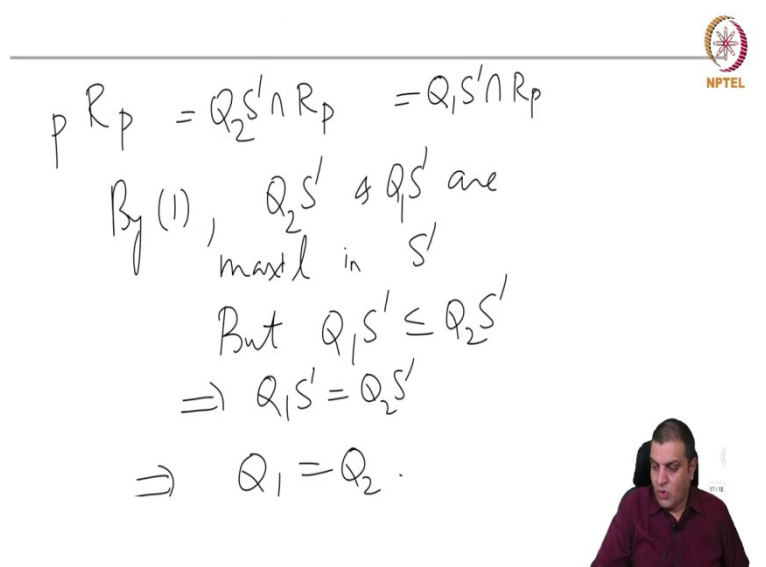 NPTEL
pRp = Q₂S' ∩ Rp = Q₁S' ∩ Rp
By (1), Q₂S' & Q₁S' are
maxl in S'
But Q₁S' ⊆ Q₂S'
⇒ Q₁S' = Q₂S'
⇒ Q₁ = Q₂.
17/18